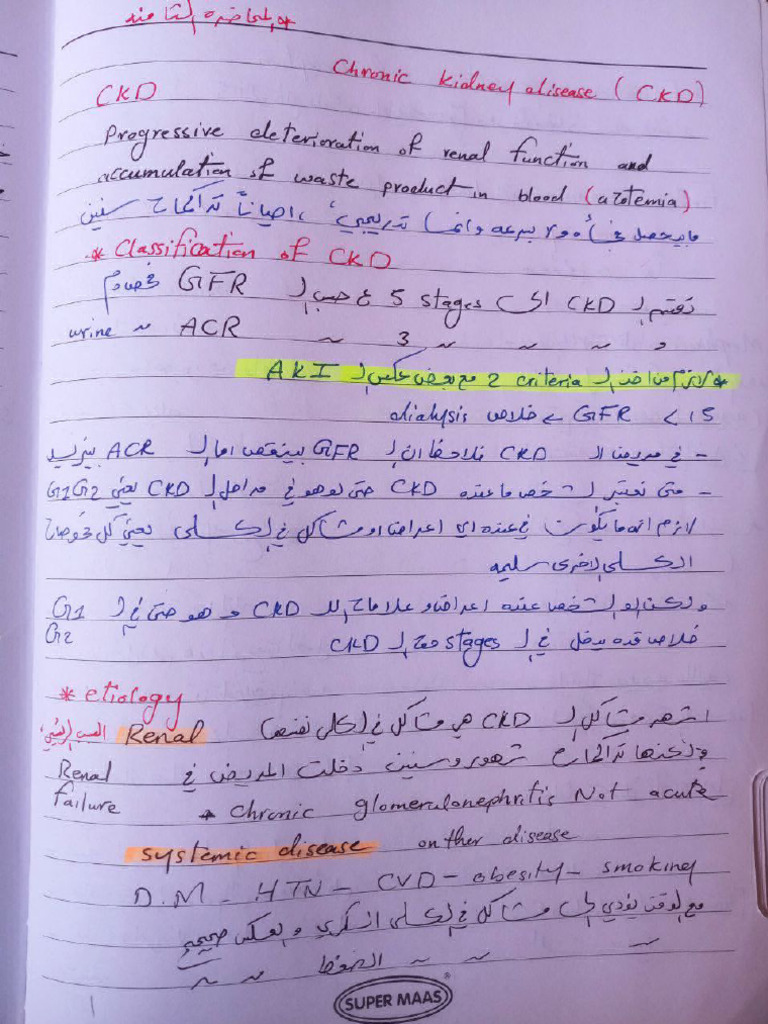 * المحاضرة الثامنه
Chronic kidney disease (CKD)
CKD
Progressive deterioration of renal function and
accumulation of waste product in blood (azotemia)
ما بيحصل فجأه ولا بسرعه وانما تدريجيي، احياناً تدا سنين
* Classification of CKD
تقسم ال CKD الى 5 stages ع حسب ال GFR
و ~ ~ ~ 3 ~ ACR ~ urine
* لازم من اخذ ال 2 criteria مع بعض عكس ال AKI
15 > GFR خلاص dialysis
- في مريض ال CKD نلاحظ ان ال GFR بينقص اما ال ACR بيزيد
- متى نعتبر الشخص ما عنده CKD حتى لو هو في مراحل ال CKD يعني G1 G2
لازم انه ما يكون في عنده اي اعراض او مشاكل في الكلى يعني كل
الكلى الاخرى سليمه
ولكن لو الشخص عنده اعراض وعلامات لل CKD و هو حتى في ال G1
G2 خلاص قده يدخل في ال stages مع ال CKD
* etiology
السبب الرئيسي Renal اشهر مشاكل ال CKD هي مشاكل في الكلى نفسها
ولكنها شهور وسنين دخلت المريض في Renal
failure * chronic glomerulonephritis Not acute
systemic disease onther disease
D.M - HTN - CVD - obesity - smoking
مع الوقت يؤدي الى مشاكل في الكلى السكري والعكس صحيح
~ ~ الضغط ~ ~ ~
SUPER MAAS®
1